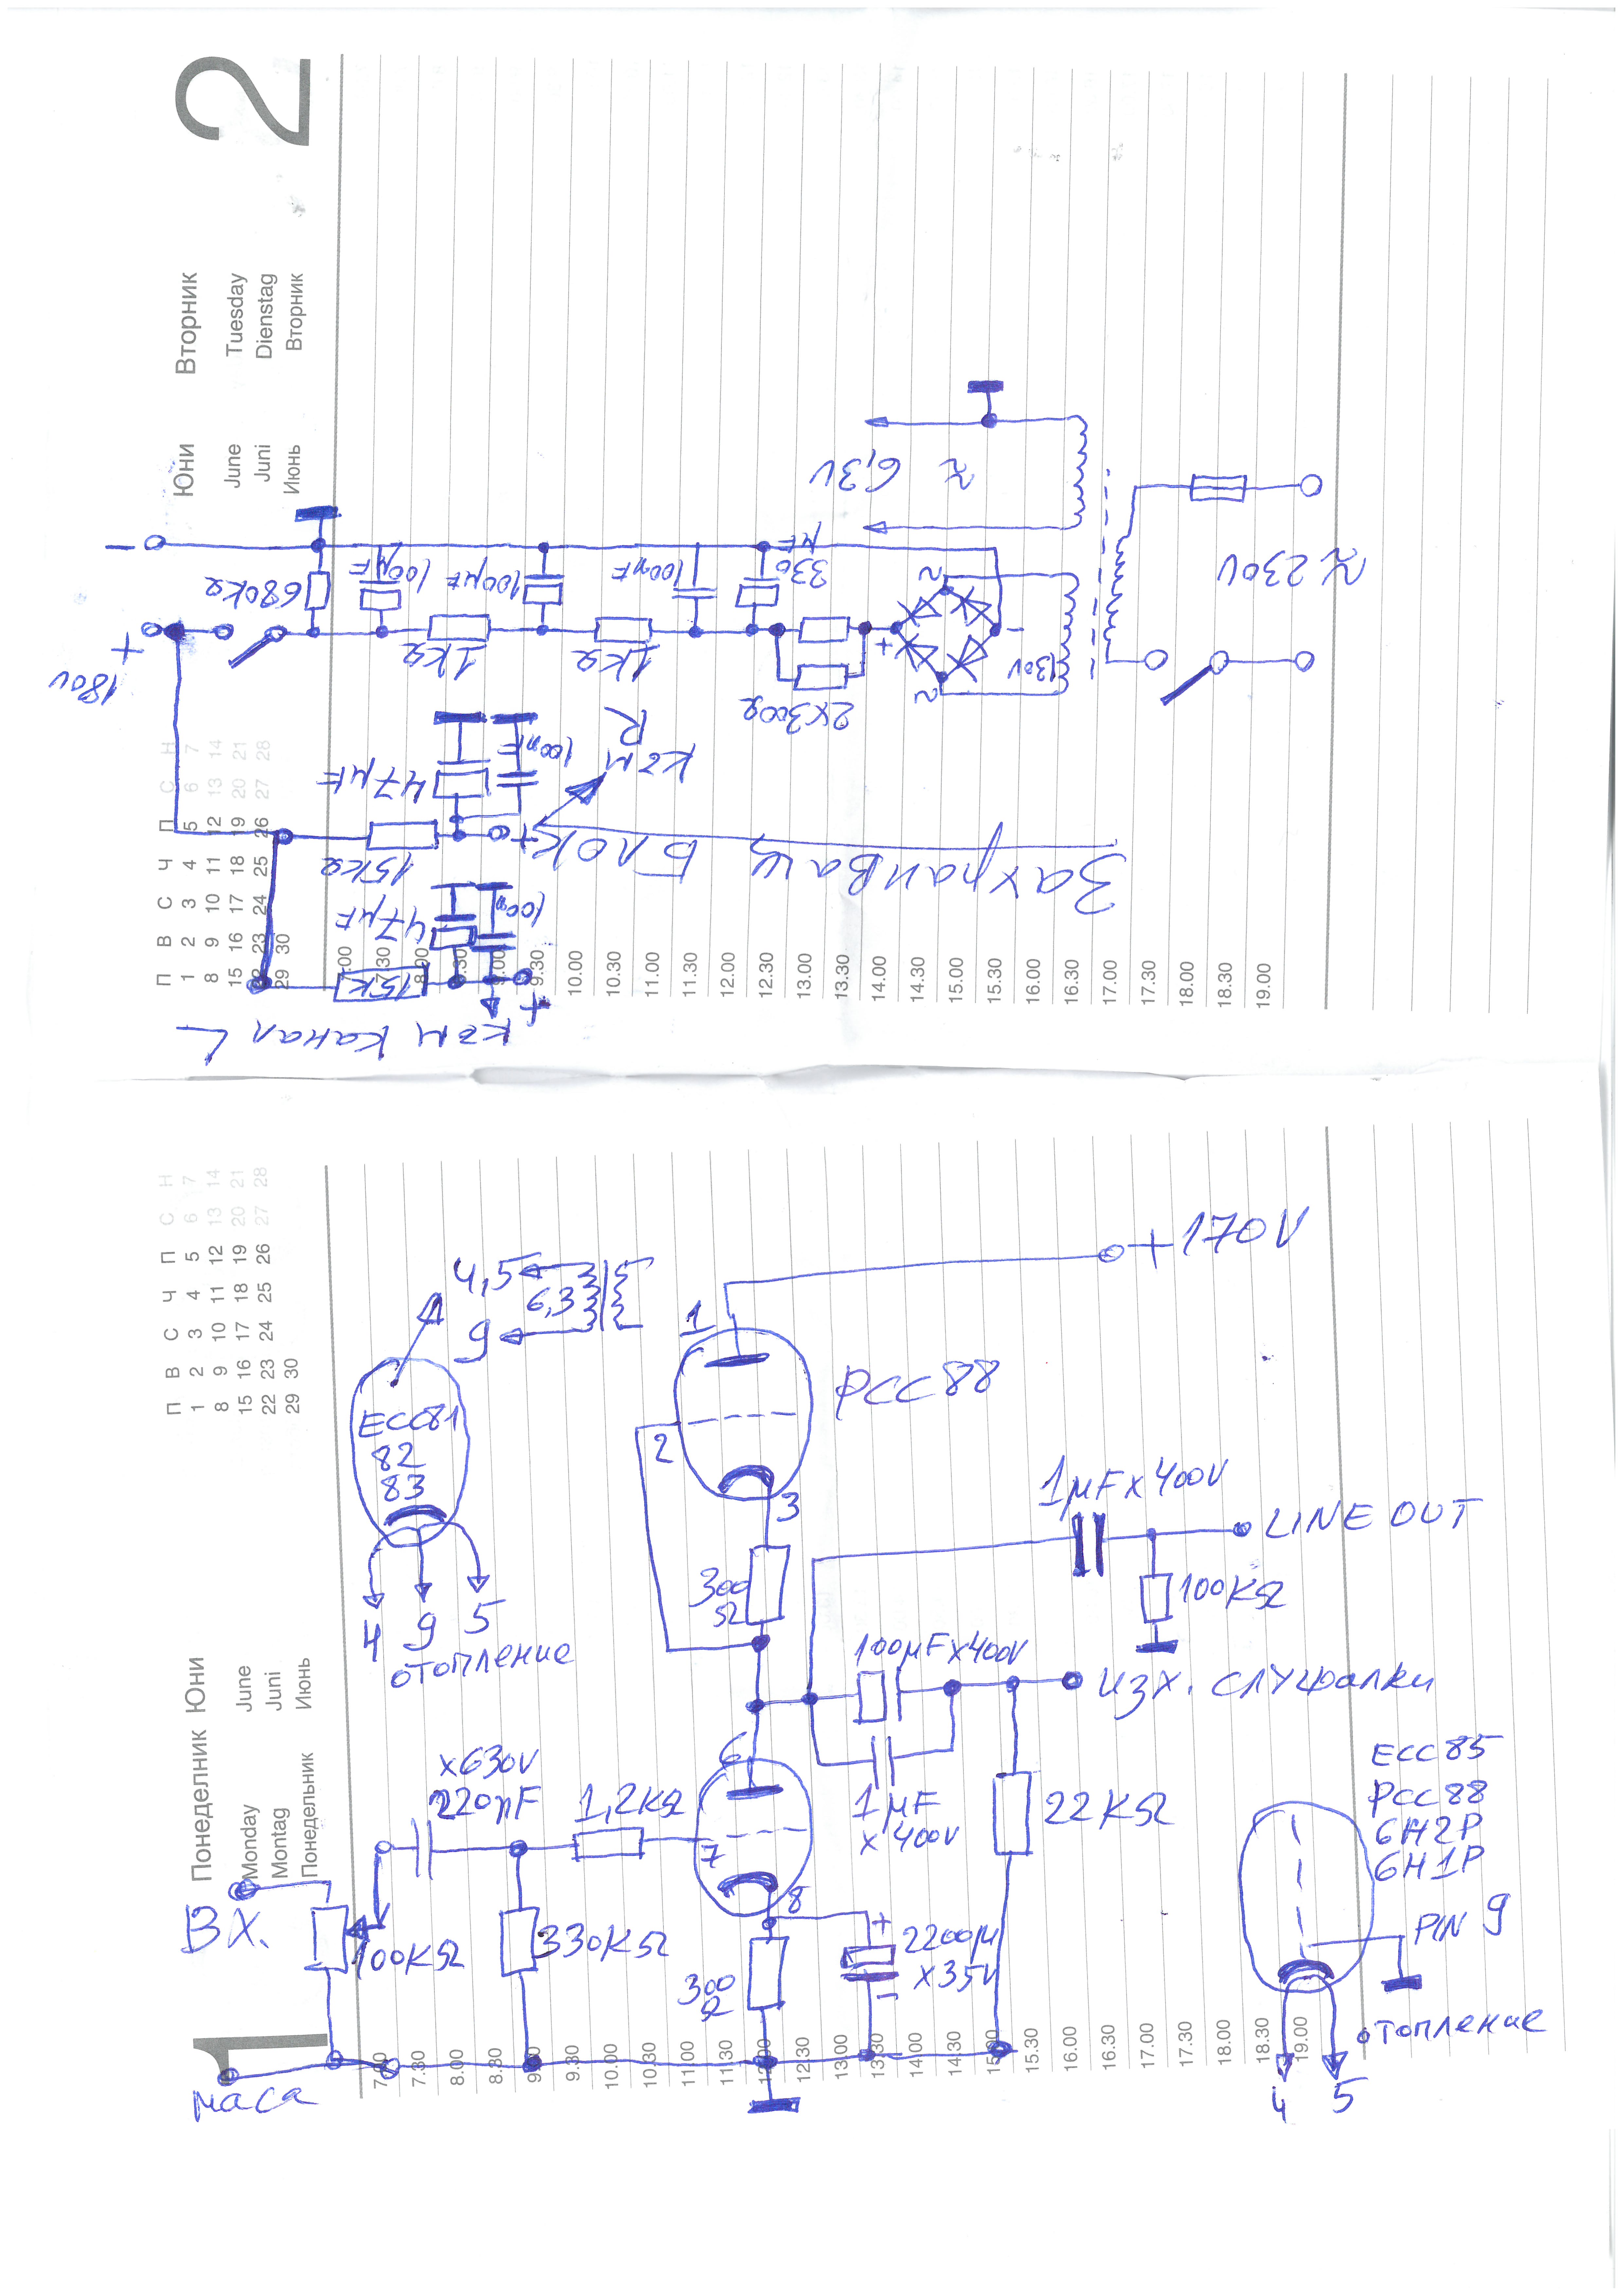 2
Вторник
Tuesday
Dienstag
Вторник
Юни
June
Juni
Июнь
П В С Ч П С Н
1 2 3 4 5 6 7
8 9 10 11 12 13 14
15 16 17 18 19 20 21
22 23 24 25 26 27 28
29 30
8.00
9.30
10.00
10.30
11.00
11.30
12.00
12.30
13.00
13.30
14.00
14.30
15.00
15.30
16.00
16.30
17.00
17.30
18.00
18.30
19.00
−
+
180V
680kΩ
100μF
1kΩ
100μF
1kΩ
100nF
330
μF
2x300Ω
+
−
~
~
130V
≈
6,3V
≈230V
15kΩ
47μF
100nF
+
към
R
15k
47μF
100n
+
към канал L
Захранващ Блок
1
Понеделник
Monday
Montag
Понедельник
Юни
June
Juni
Июнь
П В С Ч П С Н
1 2 3 4 5 6 7
8 9 10 11 12 13 14
15 16 17 18 19 20 21
22 23 24 25 26 27 28
29 30
7.30
8.00
8.30
9.30
10.00
10.30
11.00
11.30
12.00
12.30
13.00
13.30
14.00
14.30
15.30
16.00
16.30
17.00
17.30
18.00
18.30
19.00
+170V
4,5
6,3
9
ECC81
82
83
4 9 5
отопление
1
2
3
PCC88
300
Ω
1μFx400V
LINE OUT
100KΩ
100μFx400V
изх. слушалки
1μF
x400V
22KΩ
x630V
220nF
1,2KΩ
6
7
8
Вх.
100KΩ
330KΩ
300
Ω
+
2200μ
x35V
−
маса
ECC85
PCC88
6H2P
6H1P
PIN 9
отопление
4 5